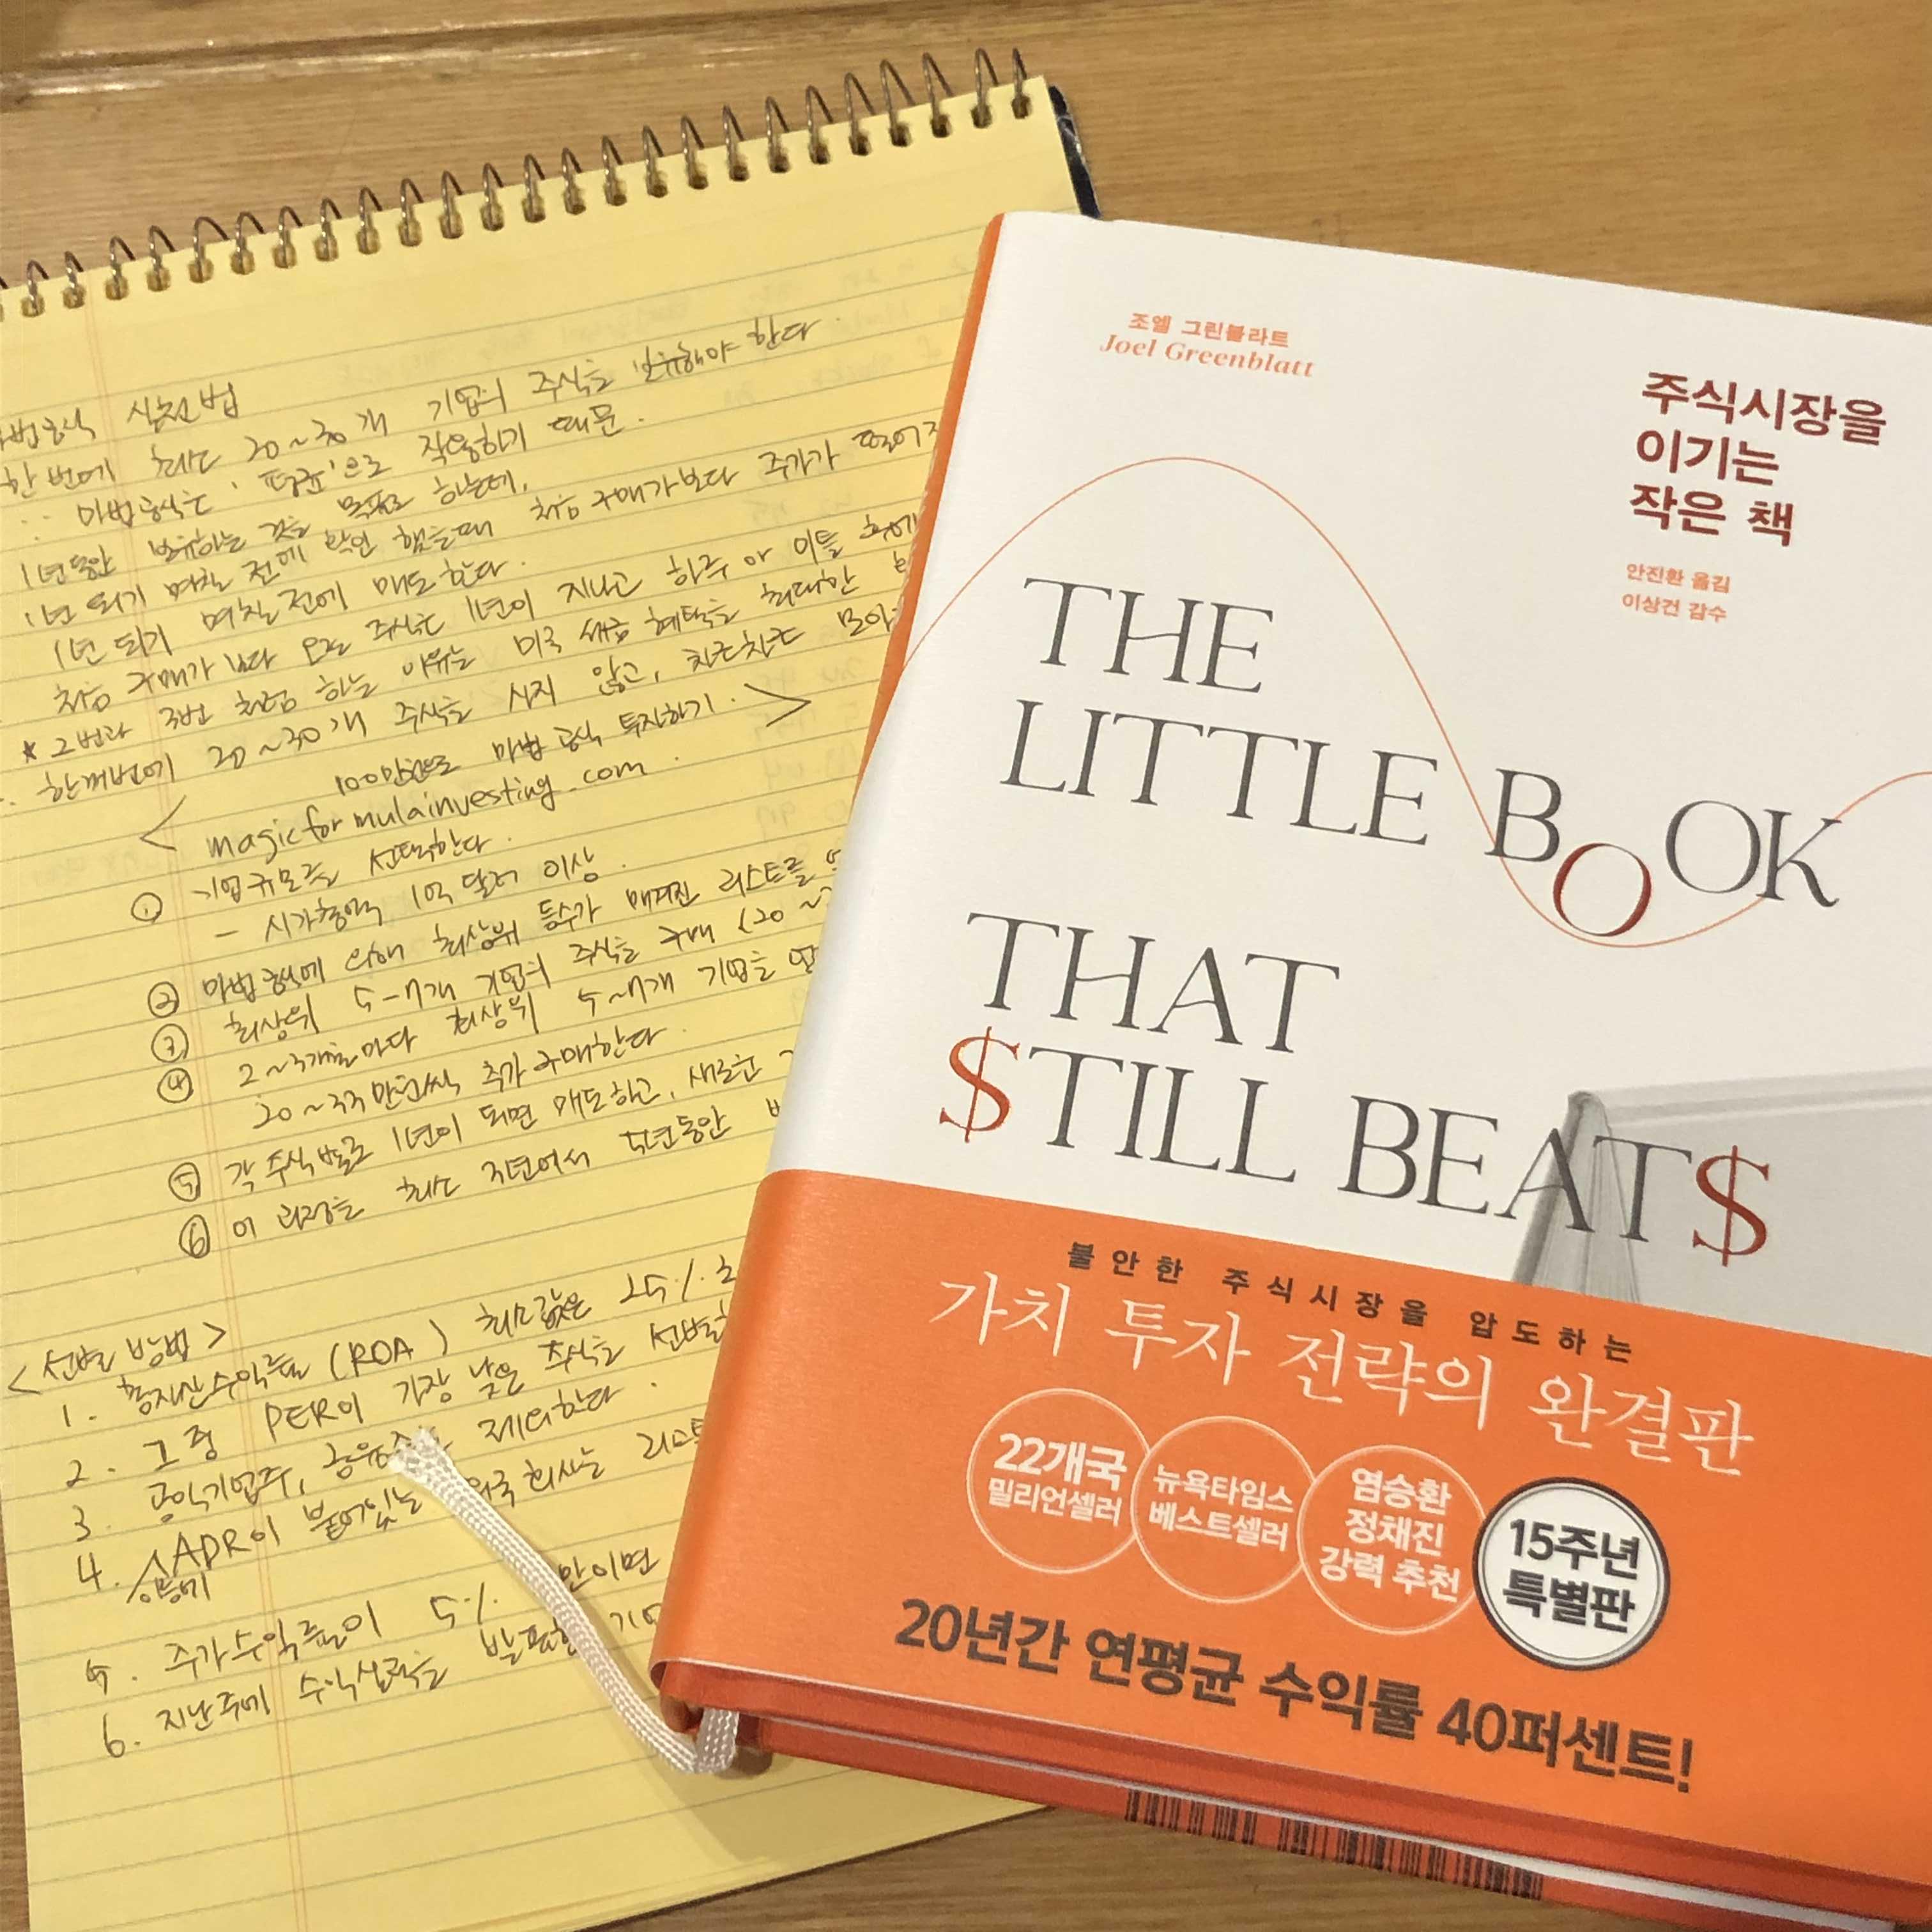 마법공식 실천법
한 번에 최소 20~30개 기업의 주식을 보유해야 한다
∵ 마법공식은 '평균'으로 작용하기 때문.
1년동안 보유하는 것을 목표로 하는데,
1년 되기 며칠 전에 확인 했을때 처음 구매가보다 주가가 떨어지
1년 되기 며칠전에 매도한다.
처음 구매가 보다 오른 주식은 1년이 지나고 하루 아 이틀 후에
* 2번과 3번 처럼 하는 이유는 미국 세금 혜택을 최대한
한꺼번에 20~30개 주식을 사지 않고, 차근차근 모아
< 100만원으로 마법 공식 투자하기. >
magicformulainvesting.com.
① 기업규모를 선택한다.
- 시가총액 1억 달러 이상.
② 마법공식에 의해 최상위 등수가 매겨진 리스트를
③ 최상위 5-7개 기업의 주식을 구매 (20~
④ 2~3개월마다 최상위 5~7개 기업을
20~33만원씩 추가 구매한다.
⑤ 각 주식별로 1년이 되면 매도하고, 새로운
⑥ 이 과정을 최소 3년에서 5년동안
<선별 방법>
1. 총자산수익률 (ROA) 최소값은 25%로
2. 그 중 PER이 가장 낮은 주식을 선별
3. 공익기업주, 금융주는 제외한다.
4. ADR이 붙어있는 외국 회사는 리스트
5. 주가수익률이 5% 만이면
6. 지난주에 수익실적을 발표한 기업
조엘 그린블라트
Joel Greenblatt
주식시장을
이기는
작은 책
안진환 옮김
이상건 감수
THE
LITTLE BOOK
THAT
$TILL BEAT$
불안한 주식시장을 압도하는
가치 투자 전략의 완결판
22개국
밀리언셀러
뉴욕타임스
베스트셀러
염승환
정채진
강력 추천
15주년
특별판
20년간 연평균 수익률 40퍼센트!